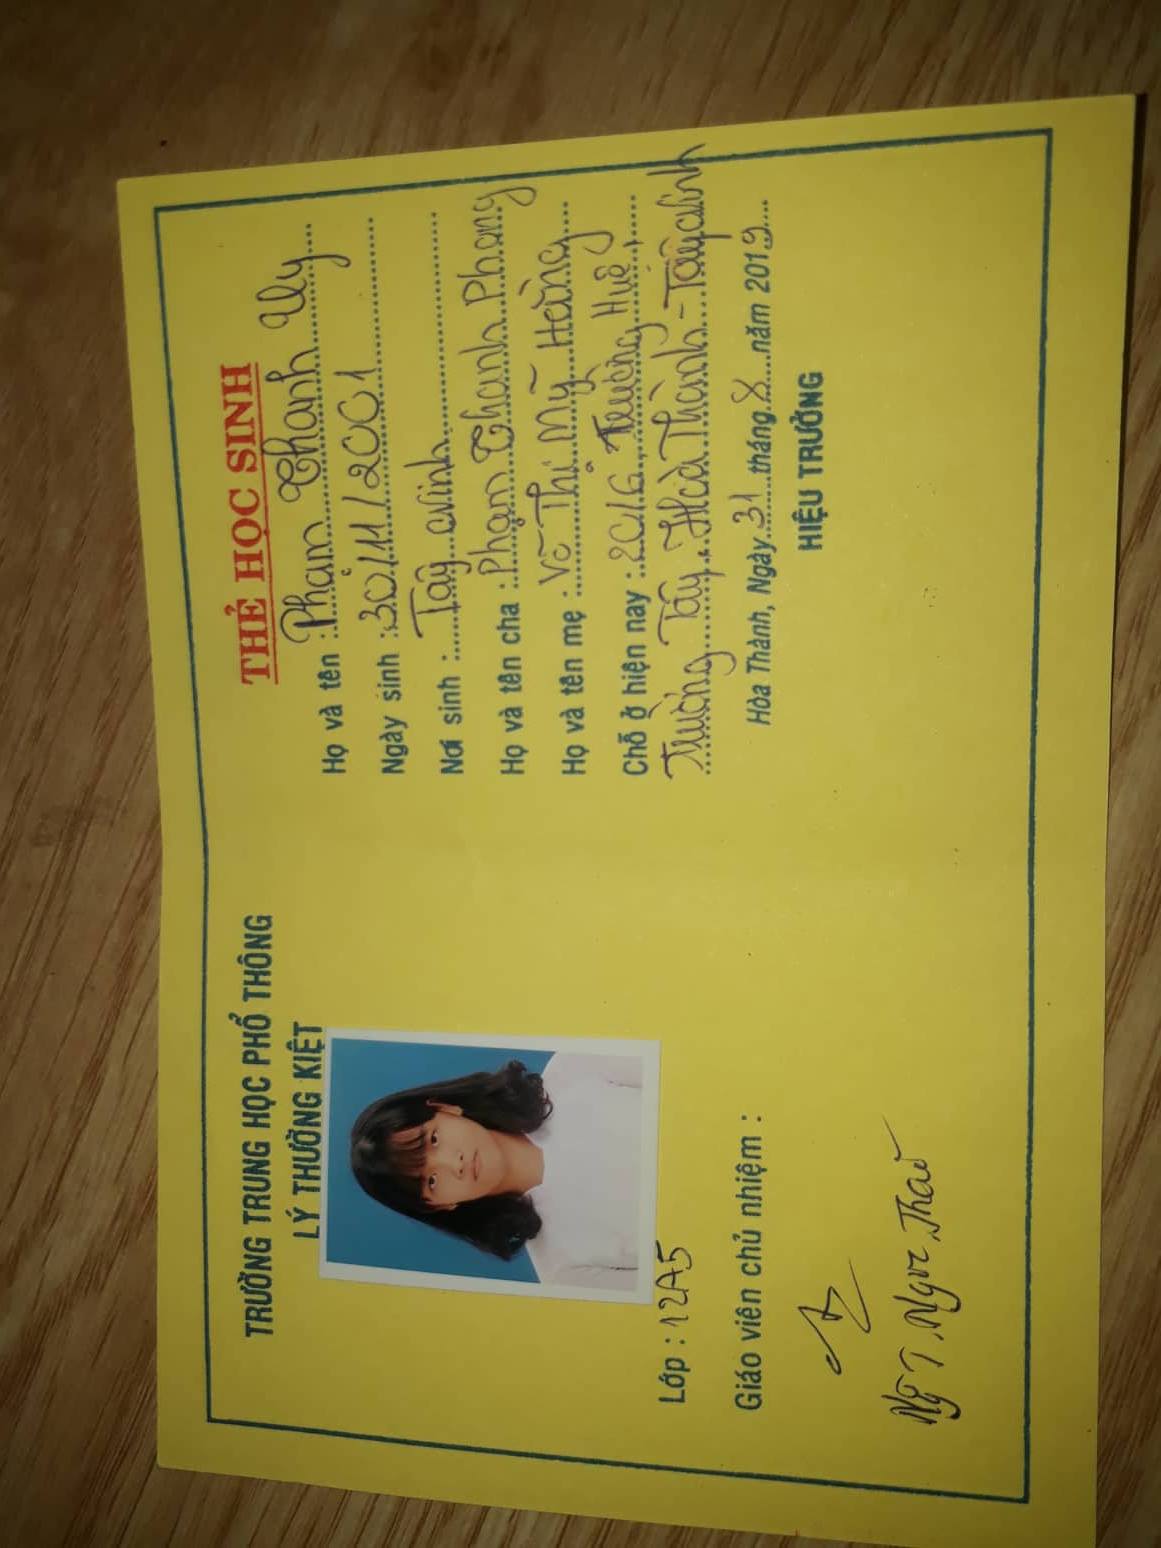 TRƯỜNG TRUNG HỌC PHỔ THÔNG
LÝ THƯỜNG KIỆT
Lớp : 12A5
Giáo viên chủ nhiệm :
Ng T. Ngọc Thảo
THẺ HỌC SINH
Họ và tên : Phạm Thanh Uy
Ngày sinh : 30/11/2001
Nơi sinh : Tây Ninh
Họ và tên cha : Phạm Thanh Phong
Họ và tên mẹ : Võ Thị Mỹ Hằng
Chỗ ở hiện nay : 20/6, Trường Huệ,
Trường Tây, Hoà Thành - Tây Ninh
Hòa Thành, Ngày 31 tháng 8 năm 2019
HIỆU TRƯỞNG